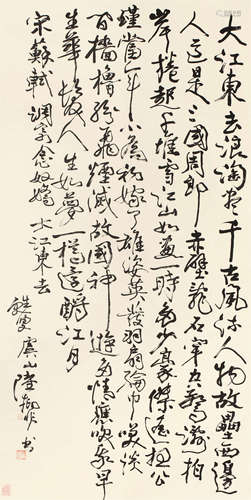 大江東去浪淘盡千古風流人物故壘西邊
人道是三國周郎赤壁亂石穿空驚濤拍
岸捲起千堆雪江山如畫一時多少豪傑遙想公
瑾當年小喬初嫁了雄姿英發羽扇綸巾笑談
間檣櫓飛煙滅故國神遊多情應笑我早
生華髮人生如夢一樽還酹江月
宋蘇軾調寄念奴嬌 大江東去
虞山陸抑非書